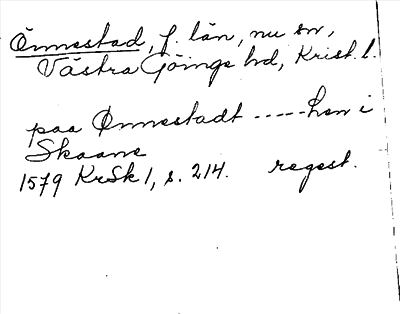 Önnestad, f. län, nu sn,
Västra Göinge hd, Krist. l.
paa Ønnestadt ----- hen i
Skaane
1579 KrSk 1, s. 214. regest.